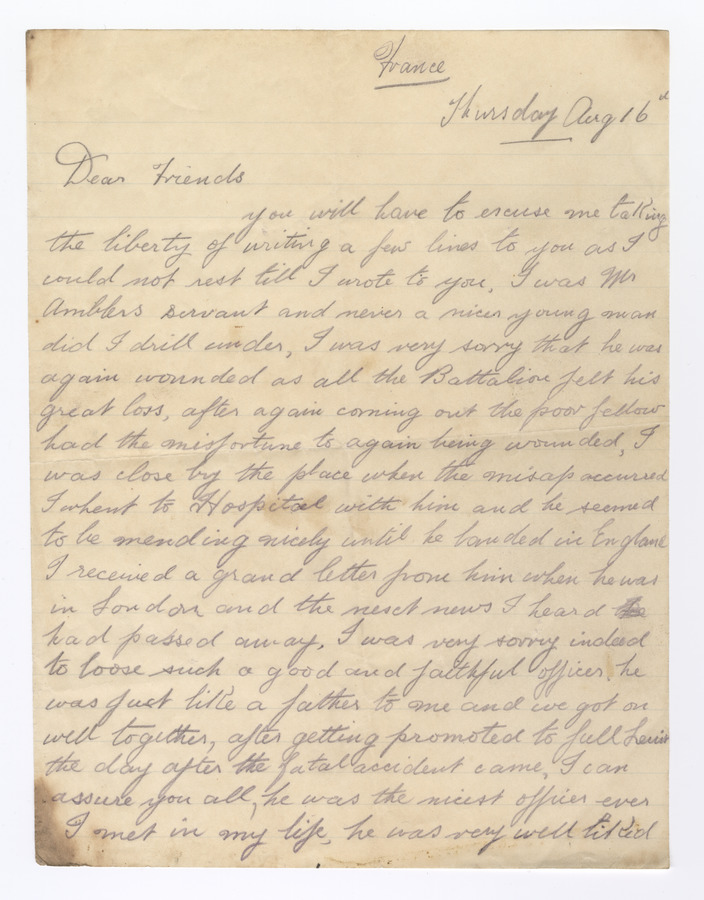 France
Thursday Aug 16
Dear Friends
you will have to escuse me taking
the liberty of writing a few lines to you as I
could not rest till I wrote to you, I was Mr
Amblers servant and never a nicer young man
did I drill under, I was very sorry that he was
again wounded as all the Battalion felt his
great loss, after again coming out the poor fellow
had the misfortune to again being wounded, I
was close by the place when the misap accurred
I whent to Hospital with him and he seemed
to be mending nicely until he landed in England
I received a grand letter from him when he was
in London and the nesct news I heard he
had passed away, I was very sorry indeed
to loose such a good and faithful officer he
was just like a father to me and we got on
well together, after getting promoted to full Leuit
the day after the fatal accident came, I can
assure you all, he was the nicest officer ever
I met in my life, he was very well liked